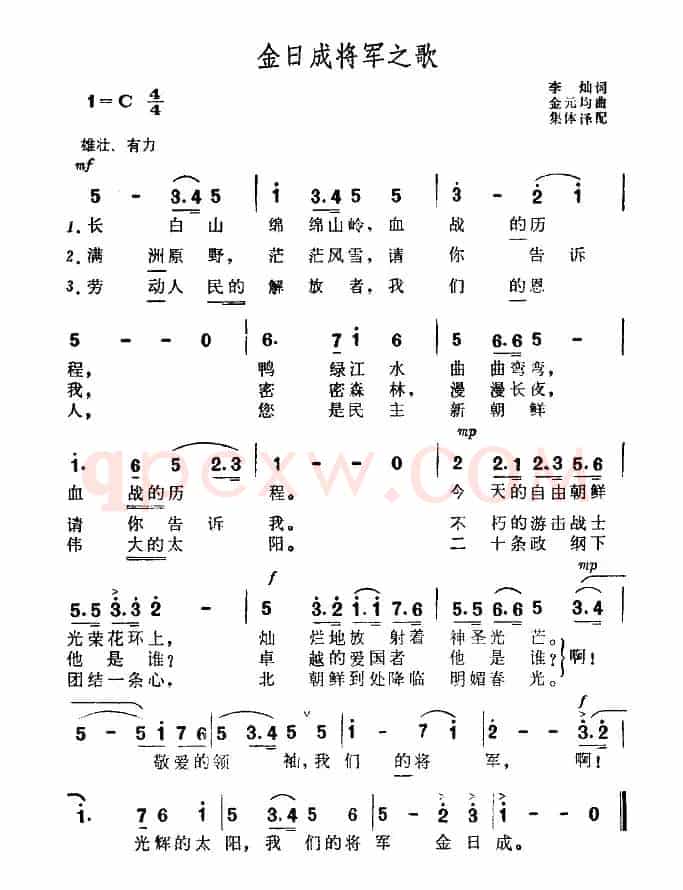 金日成将军之歌
1=C 4/4
李 灿词
金元均曲
集体译配
雄壮、有力
mf
5 - 3.4 5 | 1 3.4 5 5 | 3 - 2 1 |
1.长 白山 绵 绵山岭,血 战 的历
2.满 洲原 野,茫 茫风雪,请 你 告诉
3.劳 动人 民的 解 放者,我 们 的恩
5 - - 0 | 6. 7 1 6 | 5 6.6 5 - |
程, 鸭 绿江 水 曲 曲弯弯,
我, 密 密森 林, 漫 漫长夜,
人, 您 是民 主 新 朝鲜
mp
1. 6 5 2.3 | 1 - - 0 | 2 2.1 2.3 5.6 |
血 战的历 程。 今 天的自由朝鲜
请 你告诉 我。 不 朽的游击战士
伟 大的太 阳。 二 十条政 纲下
f mp
5.5 3.3 2 - | 5 3.2 1.1 7.6 | 5.5 6.6 5 3.4 |
光荣花环上, 灿 烂地放 射着 神圣光 芒。 啊!
他是谁? 卓 越的爱国者 他是谁?
团结一条心, 北 朝鲜到处降临 明媚春 光。
f
5 - 5 1 7 6 | 5 3.4 5 5 | 1 - 7 1 | 2 - - 3.2 |
敬爱的领 袖,我们 的将 军, 啊!
1. 7 6 1 | 5 3.4 5 6 5 | 2 - 2 3 | 1 - - 0 ‖
光辉的太 阳,我 们的将军 金日 成。
qpcxw.COM